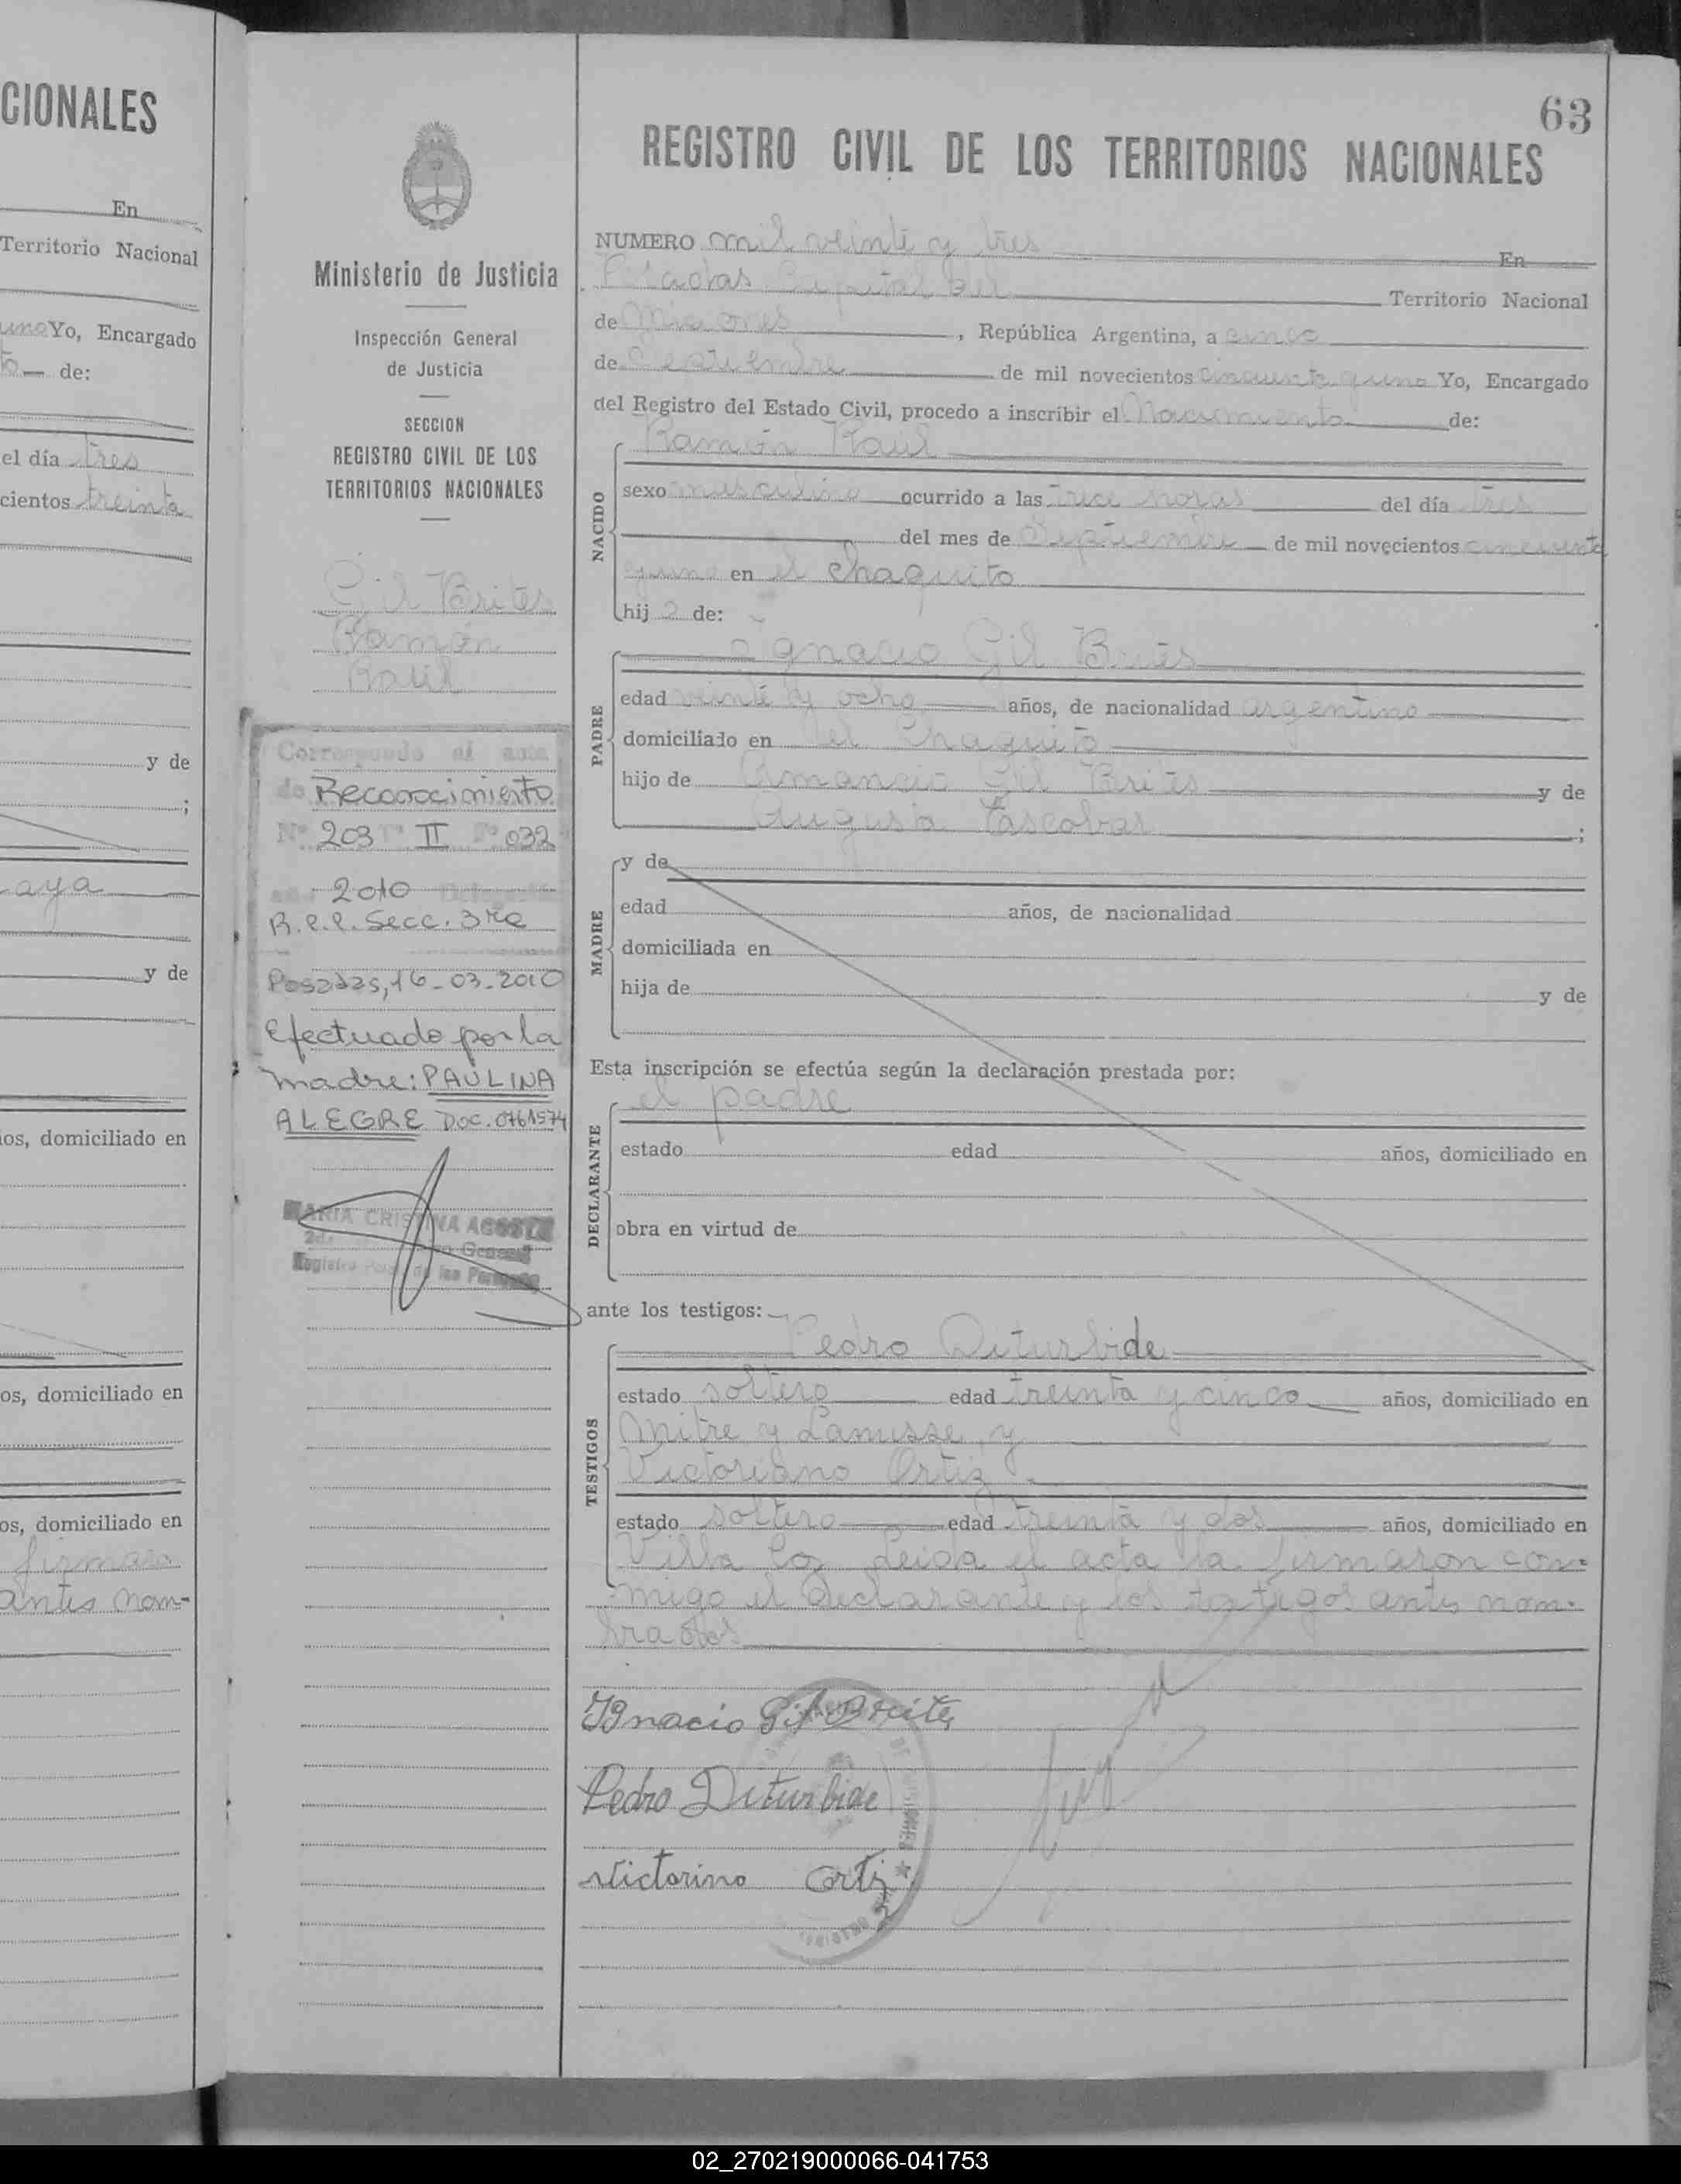 CIONALES
En
Territorio Nacional
uno Yo, Encargado
to de:
el día tres
cientos treinta
y de
;
aya
y de
ios, domiciliado en
os, domiciliado en
os, domiciliado en
firmaro
antes nom-
Ministerio de Justicia
Inspección General
de Justicia
SECCION
REGISTRO CIVIL DE LOS
TERRITORIOS NACIONALES
Gil Brites
Ramón
Raúl
Corresponde al acta
de Reconocimiento
Nº 203 Tº II Fº 032
año 2010
R.P.P. Secc. 3ra
Posadas, 16-03-2010
Efectuado por la
madre: PAULINA
ALEGRE Doc. 0761574
MARIA CRISTINA ACOSTA
General
Registro de las Personas
63
REGISTRO CIVIL DE LOS TERRITORIOS NACIONALES
NUMERO mil veinte y tres En
Posadas Capital del Territorio Nacional
de Misiones, República Argentina, a cinco
de Septiembre de mil novecientos cincuenta y uno Yo, Encargado
del Registro del Estado Civil, procedo a inscribir el Nacimiento de:
Ramón Raúl
NACIDO
sexo masculino ocurrido a las trece horas del día tres
del mes de Septiembre de mil novecientos cincuenta
y uno en el Chaquito
hij o de:
Ignacio Gil Brites
PADRE
edad veinte y ocho años, de nacionalidad argentino
domiciliado en el Chaquito
hijo de Amancio Gil Brites y de
Augusta Escobar ;
MADRE
y de
edad años, de nacionalidad
domiciliada en
hija de y de
Esta inscripción se efectúa según la declaración prestada por:
el padre
DECLARANTE
estado edad años, domiciliado en
obra en virtud de
ante los testigos:
Pedro Diturbide
TESTIGOS
estado soltero edad treinta y cinco años, domiciliado en
Mitre y Lanusse y
Victoriano Ortiz
estado soltero edad treinta y dos años, domiciliado en
Villa Leida el acta la firmaron con-
migo el declarante y los testigos antes nom-
brados
Ignacio Gil Brites
Pedro Diturbide
Victorino Ortiz
02_270219000066-041753